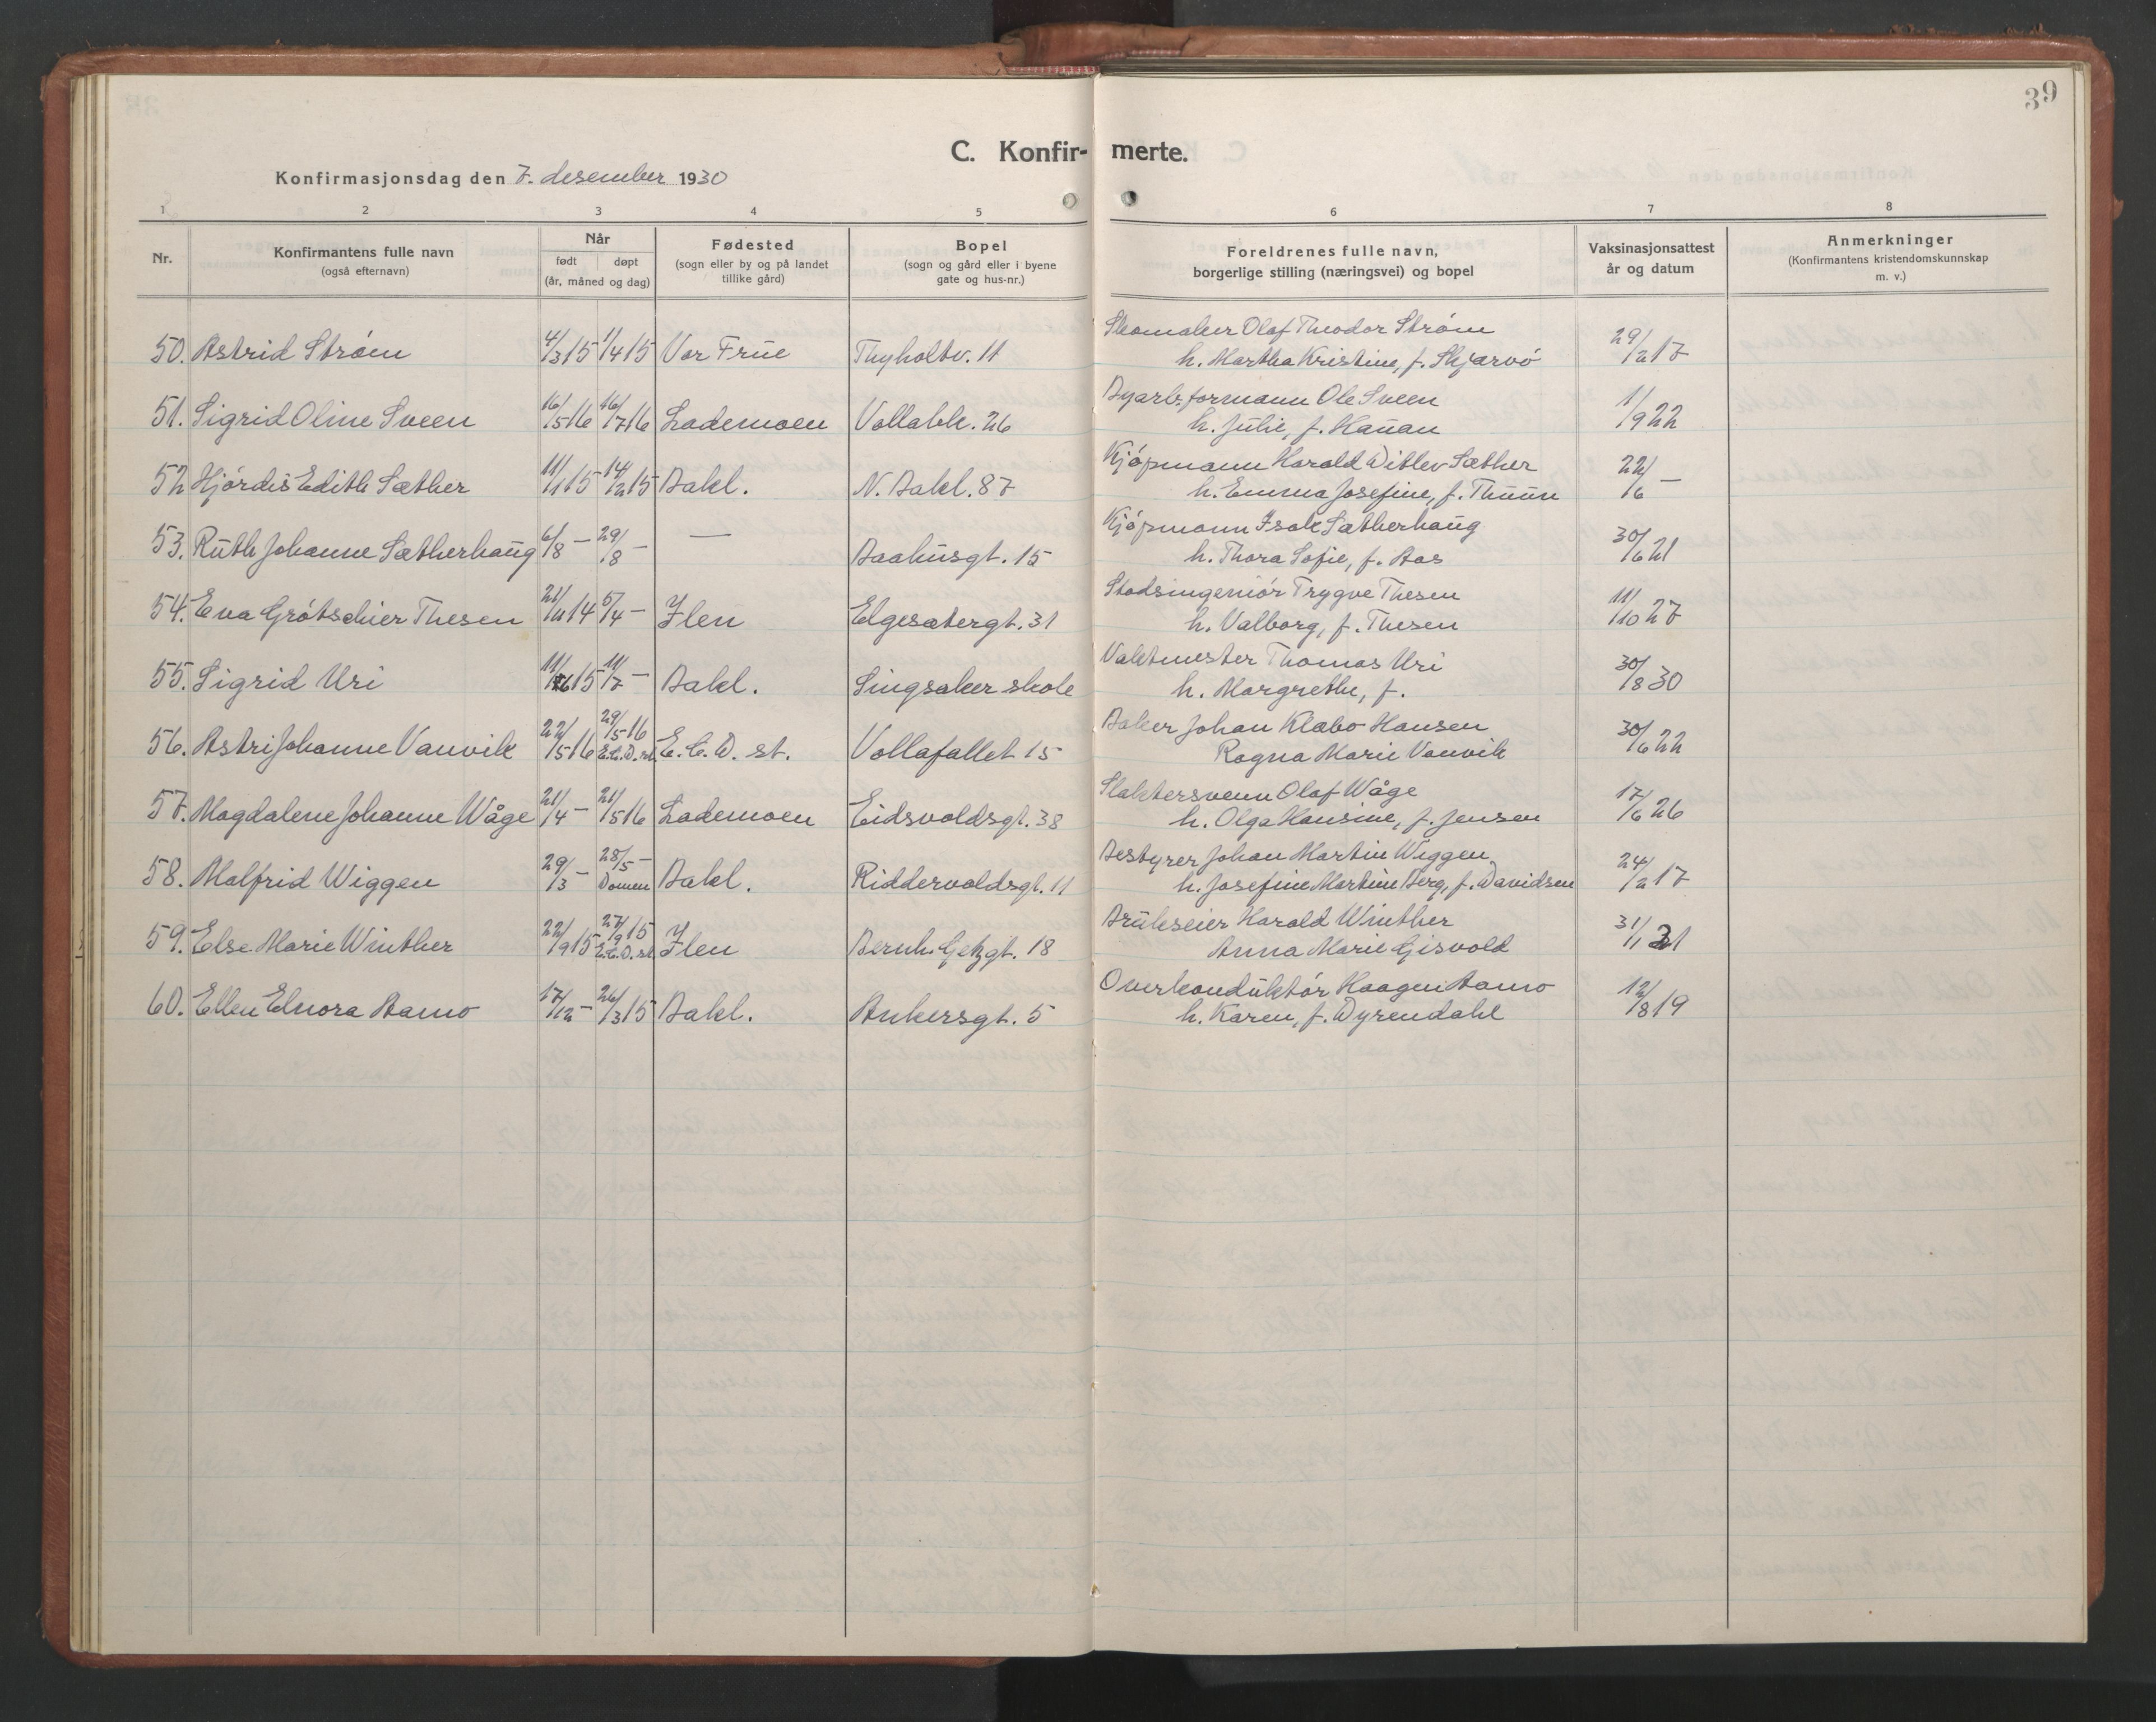 39
C. Konfir- merte.
Konfirmasjonsdag den 7. desember 1930
1 2 3 4 5 6 7 8
Nr.
Konfirmantens fulle navn
(også efternavn)
Når
født døpt
(år, måned og dag)
Fødested
(sogn eller by og på landet
tillike gård)
Bopel
(sogn og gård eller i byene
gate og hus-nr.)
Foreldrenes fulle navn,
borgerlige stilling (næringsvei) og bopel
Vaksinasjonsattest
år og datum
Anmerkninger
(Konfirmantens kristendomskunnskap
m. v.)
50. Astrid Strøm 4/3 15 11/4 15 Vor Frue Thyholtv. 11
Skomaker Olaf Theodor Strøm
h. Martha Kristine, f. Skjærvø 29/2 17
51. Sigrid Oline Sveen 16/5 16 16/7 16 Lademoen Vollabk. 26
Byarb.formann Ole Sveen
h. Julie, f. Kanan 1/9 22
52 Hjørdis Edith Sæther 11/1 15 14/2 15 Bakl. N. Bakl. 87
Kjøpmann Harald Ditlev Sæther
h. Emma Josefine, f. Thuun 22/6 –
53. Ruth Johanne Sætherhaug 6/8 – 29/8 – — Baahusgt. 15
Kjøpmann Isak Sætherhaug
h. Thora Sofie, f. Aas 30/6 21
54. Eva Grøtschier Thesen 21/11 14 5/4 – Ilen Elgesætergt. 31
Stadsingeniør Trygve Thesen
h. Valborg, f. Thesen 11/10 27
55. Sigrid Uri 11/6 15 11/7 – Bakl. Singsaker skole
Vaktmester Thomas Uri
h. Margrethe, f. 30/8 30
56. Astri Johanne Vanvik 22/5 16 29/5 16 E.C.D. st. E.C.D. st. Vollafallet 15
Baker Johan Klæbo Hansen
Ragna Marie Vanvik 30/6 22
57. Magdalene Johanne Wåge 21/4 – 21/5 16 Lademoen Eidsvoldsgt. 38
Slaktersvenn Olaf Wåge
h. Olga Hansine, f. Jensen 17/6 26
58. Malfrid Wiggen 29/3 – 28/5 – Domen Bakl. Riddervoldsgt. 11
Bestyrer Johan Martin Wiggen
h. Josefine Martine Berg, f. Davidsen 24/2 17
59. Else Marie Winther 22/9 15 27/9 15 E.C.D. st. Ilen Bernh. Getzgt. 18
Brukseier Harald Winther
Anna Marie Gisvold 31/1 21
60. Ellen Elnora Aamo 17/12 – 26/3 15 Bakl. Ankersgt. 5
Overkonduktør Haagen Aamo
h. Karen, f. Dyrendahl 12/8 19